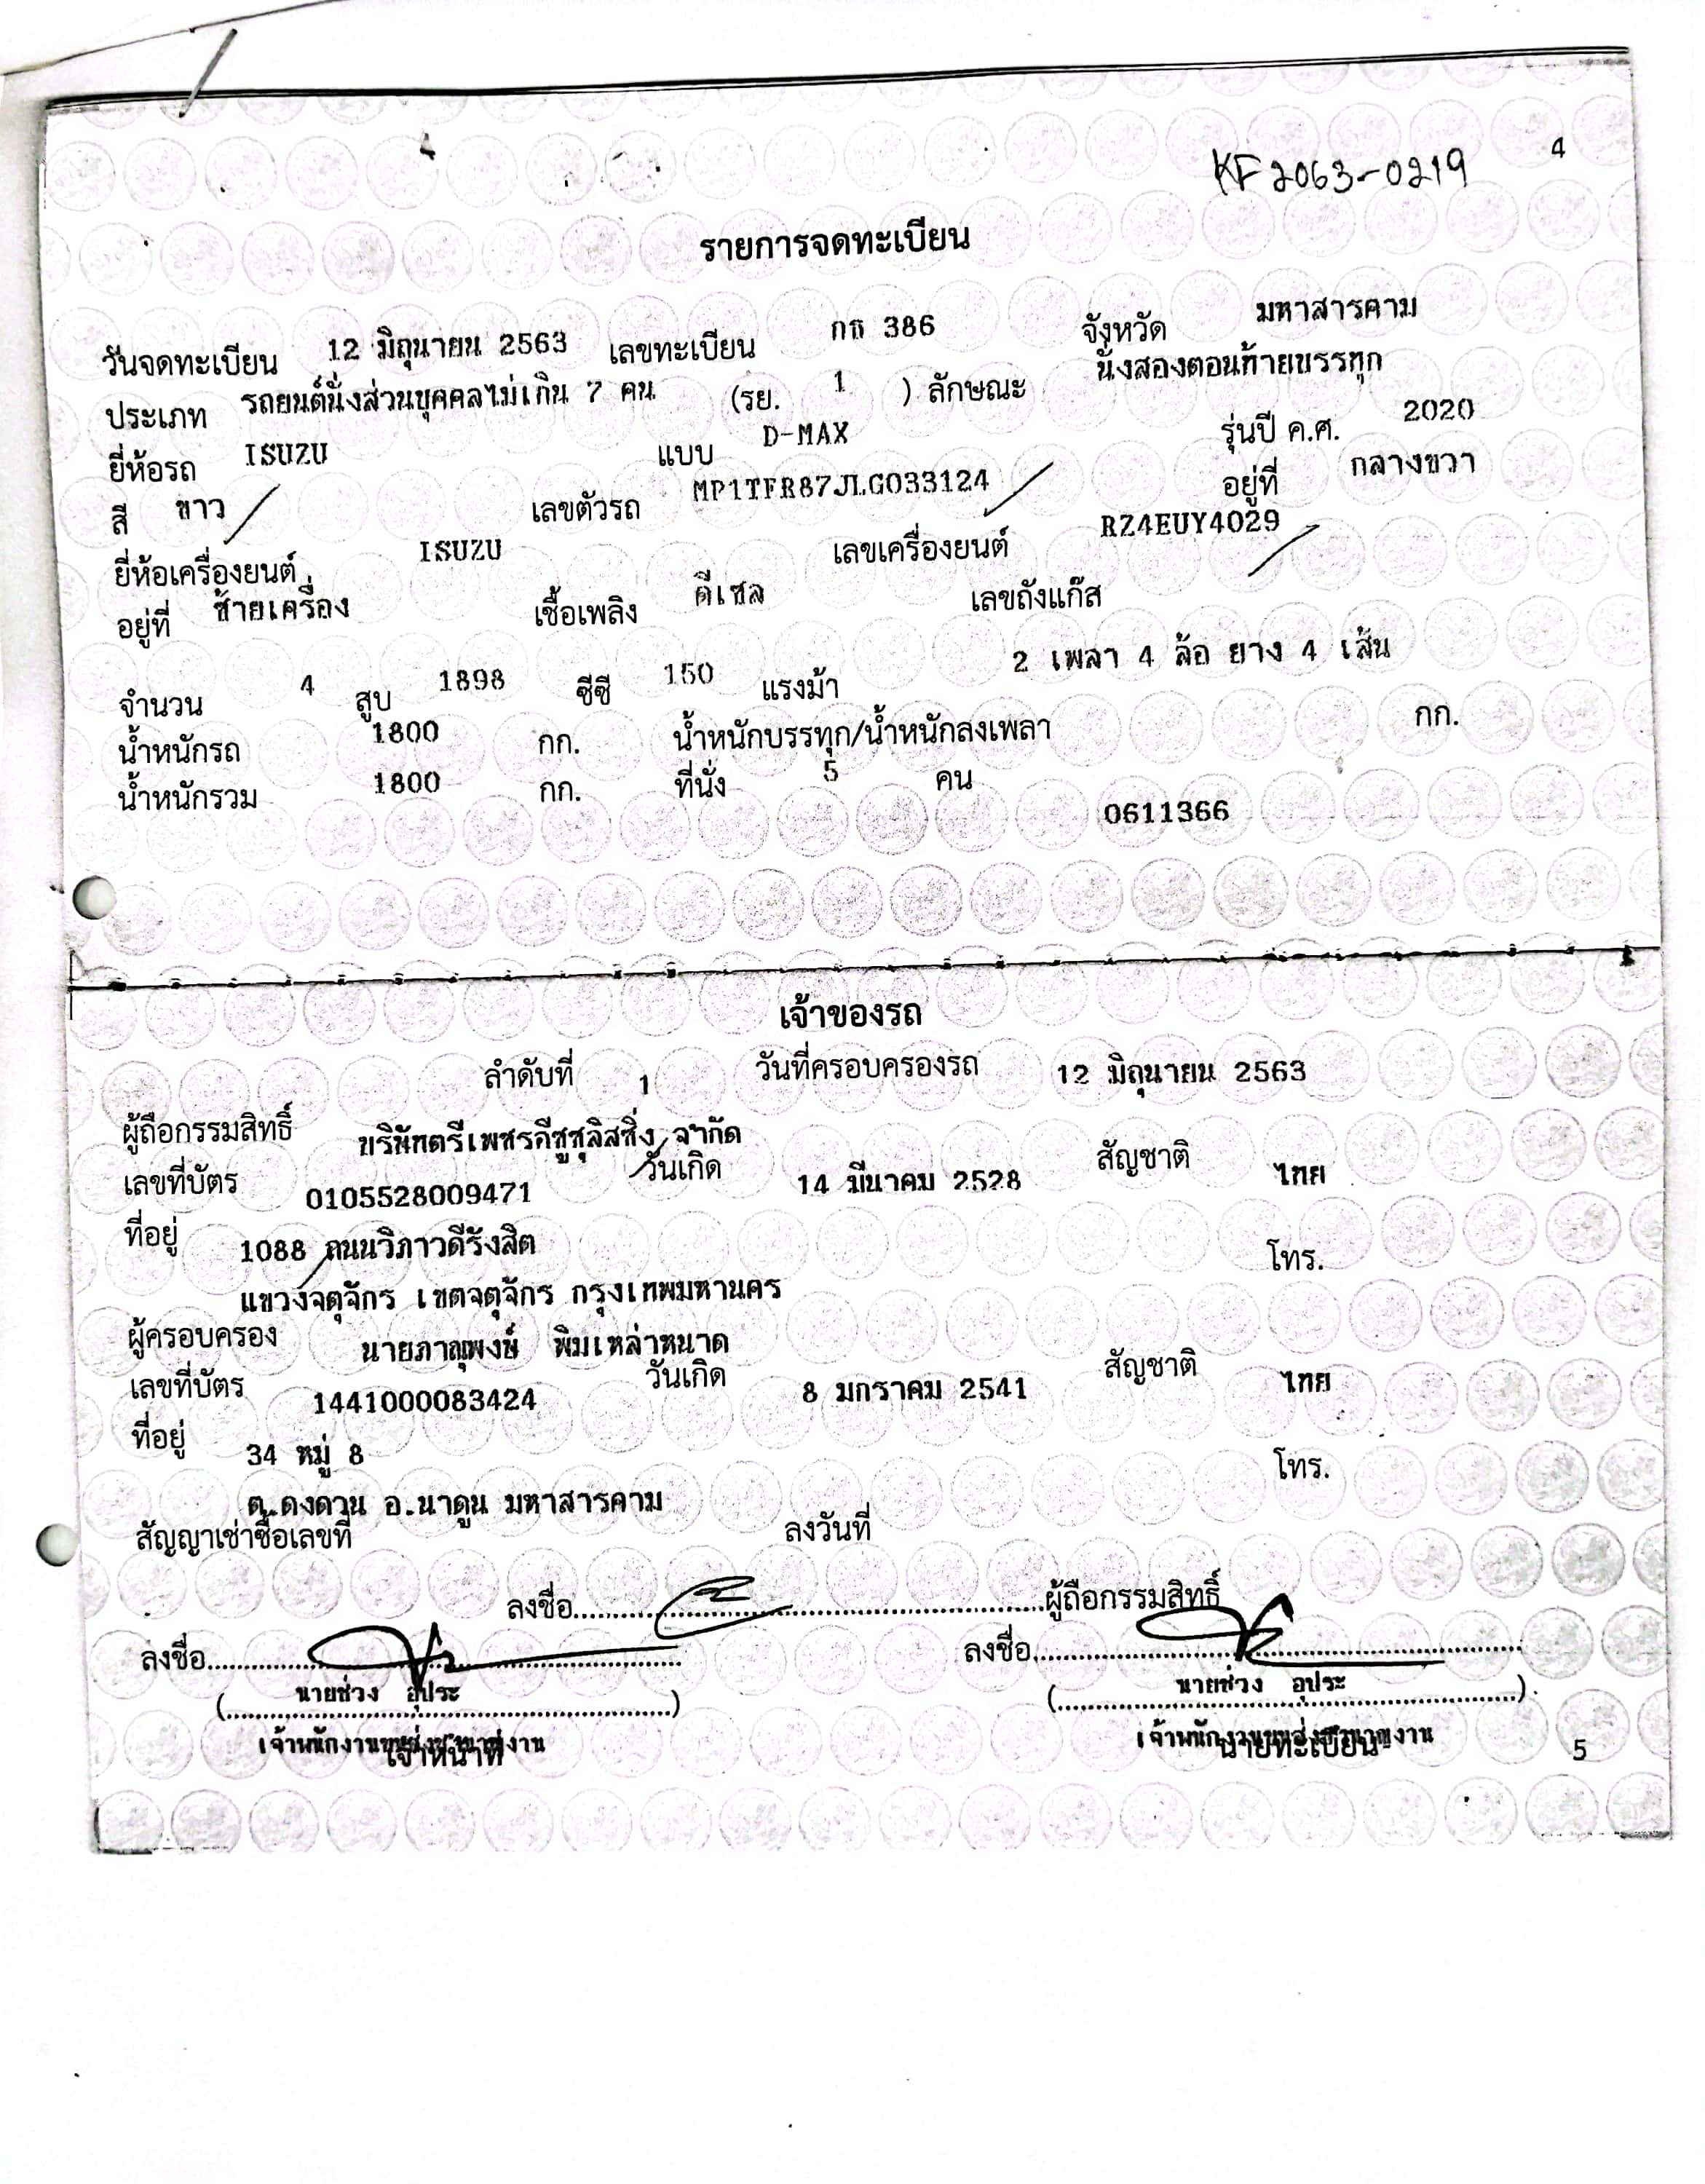 KF 2063-0219
4
รายการจดทะเบียน
วันจดทะเบียน 12 มิถุนายน 2563 เลขทะเบียน กก 386 จังหวัด มหาสารคาม
ประเภท รถยนต์นั่งส่วนบุคคลไม่เกิน 7 คน (รย. 1 ) ลักษณะ นั่งสองตอนท้ายบรรทุก
ยี่ห้อรถ ISUZU แบบ D-MAX รุ่นปี ค.ศ. 2020
สี ขาว เลขตัวรถ MP1TFR87JLG033124 อยู่ที่ กลางขวา
ยี่ห้อเครื่องยนต์ ISUZU เลขเครื่องยนต์ RZ4EUY4029
อยู่ที่ ซ้ายเครื่อง เชื้อเพลิง ดีเซล เลขถังแก๊ส
จำนวน 4 สูบ 1898 ซีซี 150 แรงม้า 2 เพลา 4 ล้อ ยาง 4 เส้น
น้ำหนักรถ 1800 กก. น้ำหนักบรรทุก/น้ำหนักลงเพลา กก.
น้ำหนักรวม 1800 กก. ที่นั่ง 5 คน
0611366
เจ้าของรถ
ลำดับที่ 1 วันที่ครอบครองรถ 12 มิถุนายน 2563
ผู้ถือกรรมสิทธิ์ บริษัทตรีเพชรอีซูซุลิสซิ่ง จำกัด
เลขที่บัตร 0105528009471 วันเกิด 14 มีนาคม 2528 สัญชาติ ไทย
ที่อยู่ 1088 ถนนวิภาวดีรังสิต โทร.
แขวงจตุจักร เขตจตุจักร กรุงเทพมหานคร
ผู้ครอบครอง นายภาณุพงษ์ พิมเหล่าหนาด
เลขที่บัตร 1441000083424 วันเกิด 8 มกราคม 2541 สัญชาติ ไทย
ที่อยู่ 34 หมู่ 8 โทร.
ต.ดงดวน อ.นาดูน มหาสารคาม
สัญญาเช่าซื้อเลขที่ ลงวันที่
ลงชื่อ ผู้ถือกรรมสิทธิ์
ลงชื่อ ลงชื่อ
(นายช่วง อุประ) (นายช่วง อุประ)
เจ้าพนักงานขนส่งชำนาญงาน เจ้าพนักงานขนส่งชำนาญงาน
เจ้าหน้าที่ นายทะเบียน
5